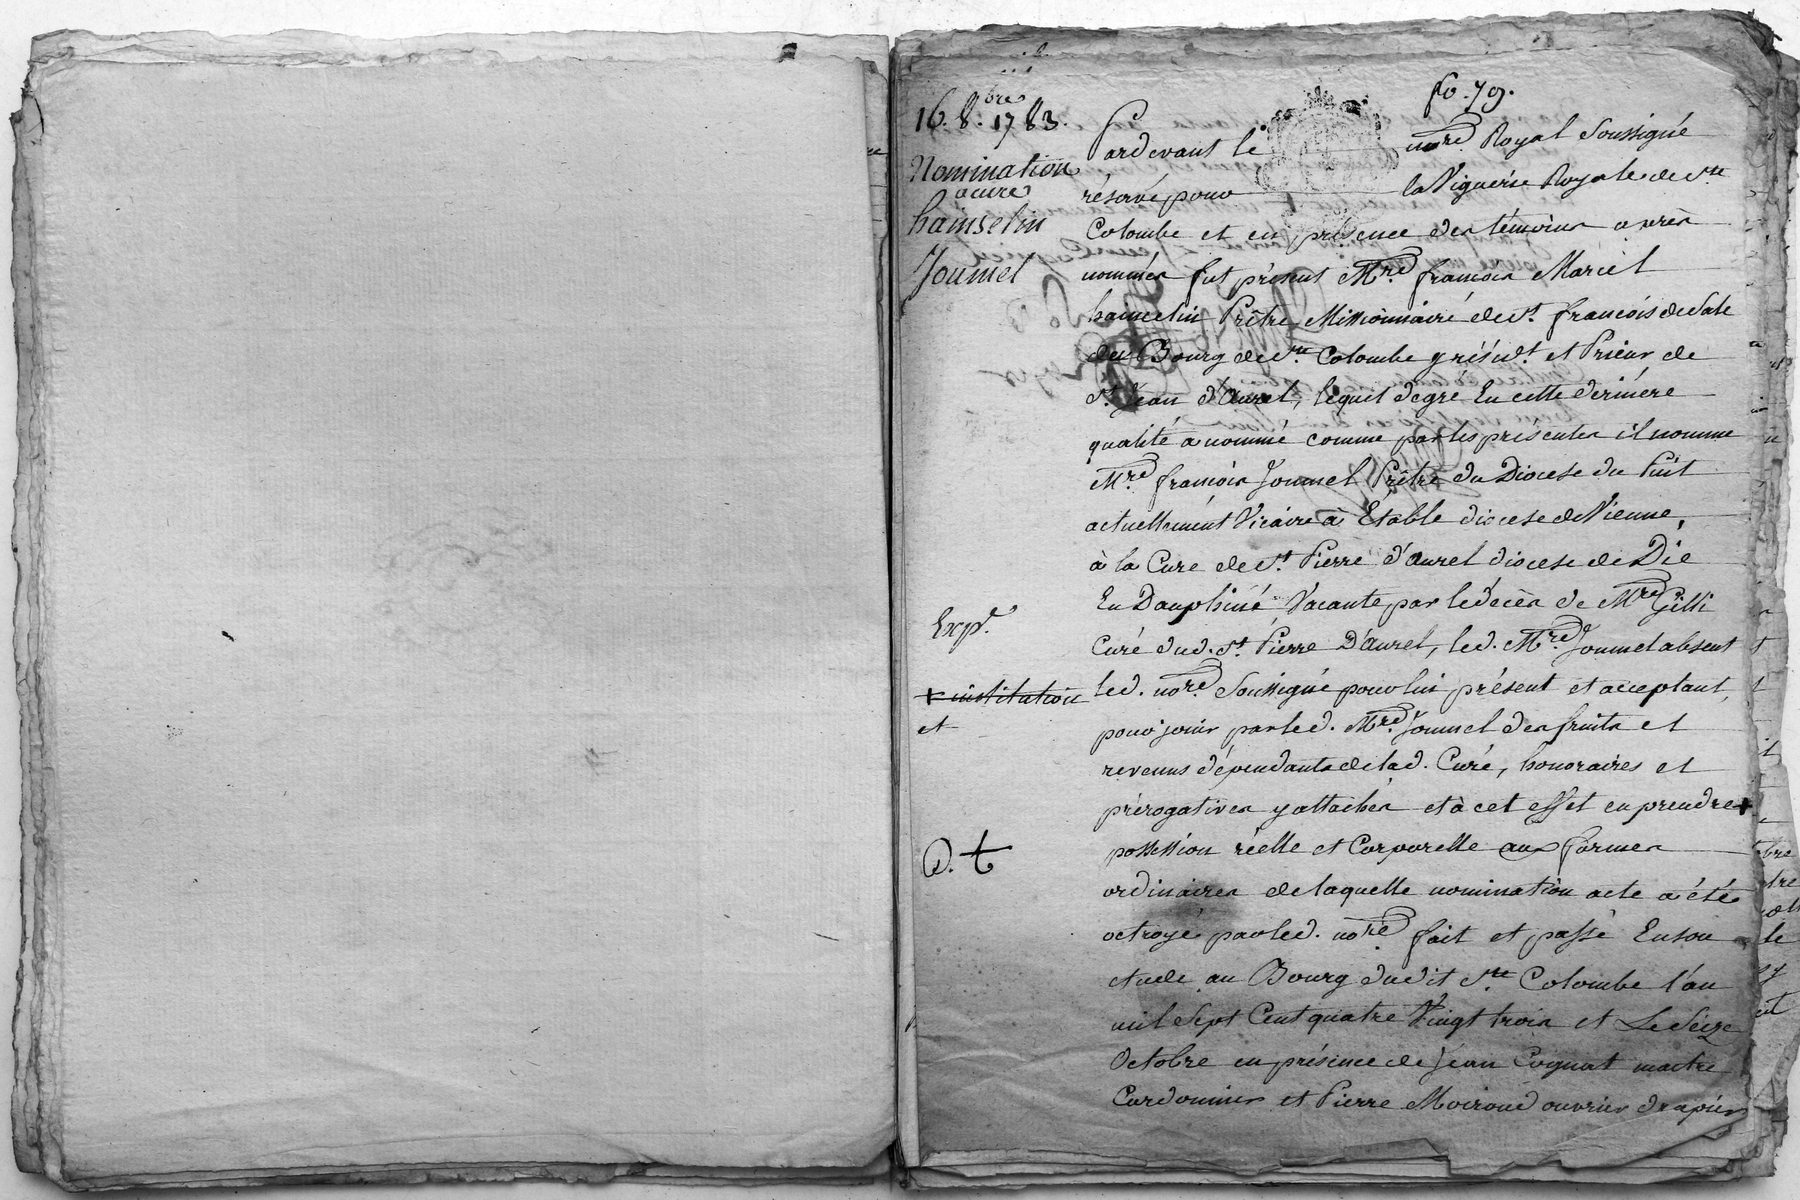 fo. 79.
16. 8.bre 1783.
Nomination
a cure
hainselin
Joumel
Pardevant le no.re Royal Soussigné
réservé pour la Viguerie Royale de S.te
Colombe et en présence des témoins après
nommés fut présent M.re françois Mariel
hainselin Prêtre Missionnaire de S.t françois de Sale
du Bourg de S.te Colombe y résid.t et Prieur de
S.t Jean d'Aurel, lequel de gré En cette derniére
qualité a nommé comme par les présentes il nomme
M.re françois Joumel Prêtre du Diocèse du Puit
actuellement Vicaire à Etable diocese de Vienne,
à la Cure de S.t Pierre d'aurel diocese de Die
En Dauphiné Vacante par le décès de M.re Gilli
Curé dud. S.t Pierre D'aurel, led. M.re Joumel absent
led. no.re Soussigné pour lui présent et acceptant,
pour jouir par led. M.re Joumel des fruits et
revenus dépendants de lad. Curé, honoraires et
prérogatives y attachés et à cet effet en prendre +
possession réelle et Corporelle aux formes
ordinaires de laquelle nomination acte a été
octroyé par led. no.re fait et passé En son
etude au Bourg dudit S.te Colombe l'an
mil Sept Cent quatre Vingt trois et Le Seize
Octobre en présence de Jean Cognat maitre
Cordonnier et Pierre Moiroud ouvrier drapier
Exp.é
+ institution
et